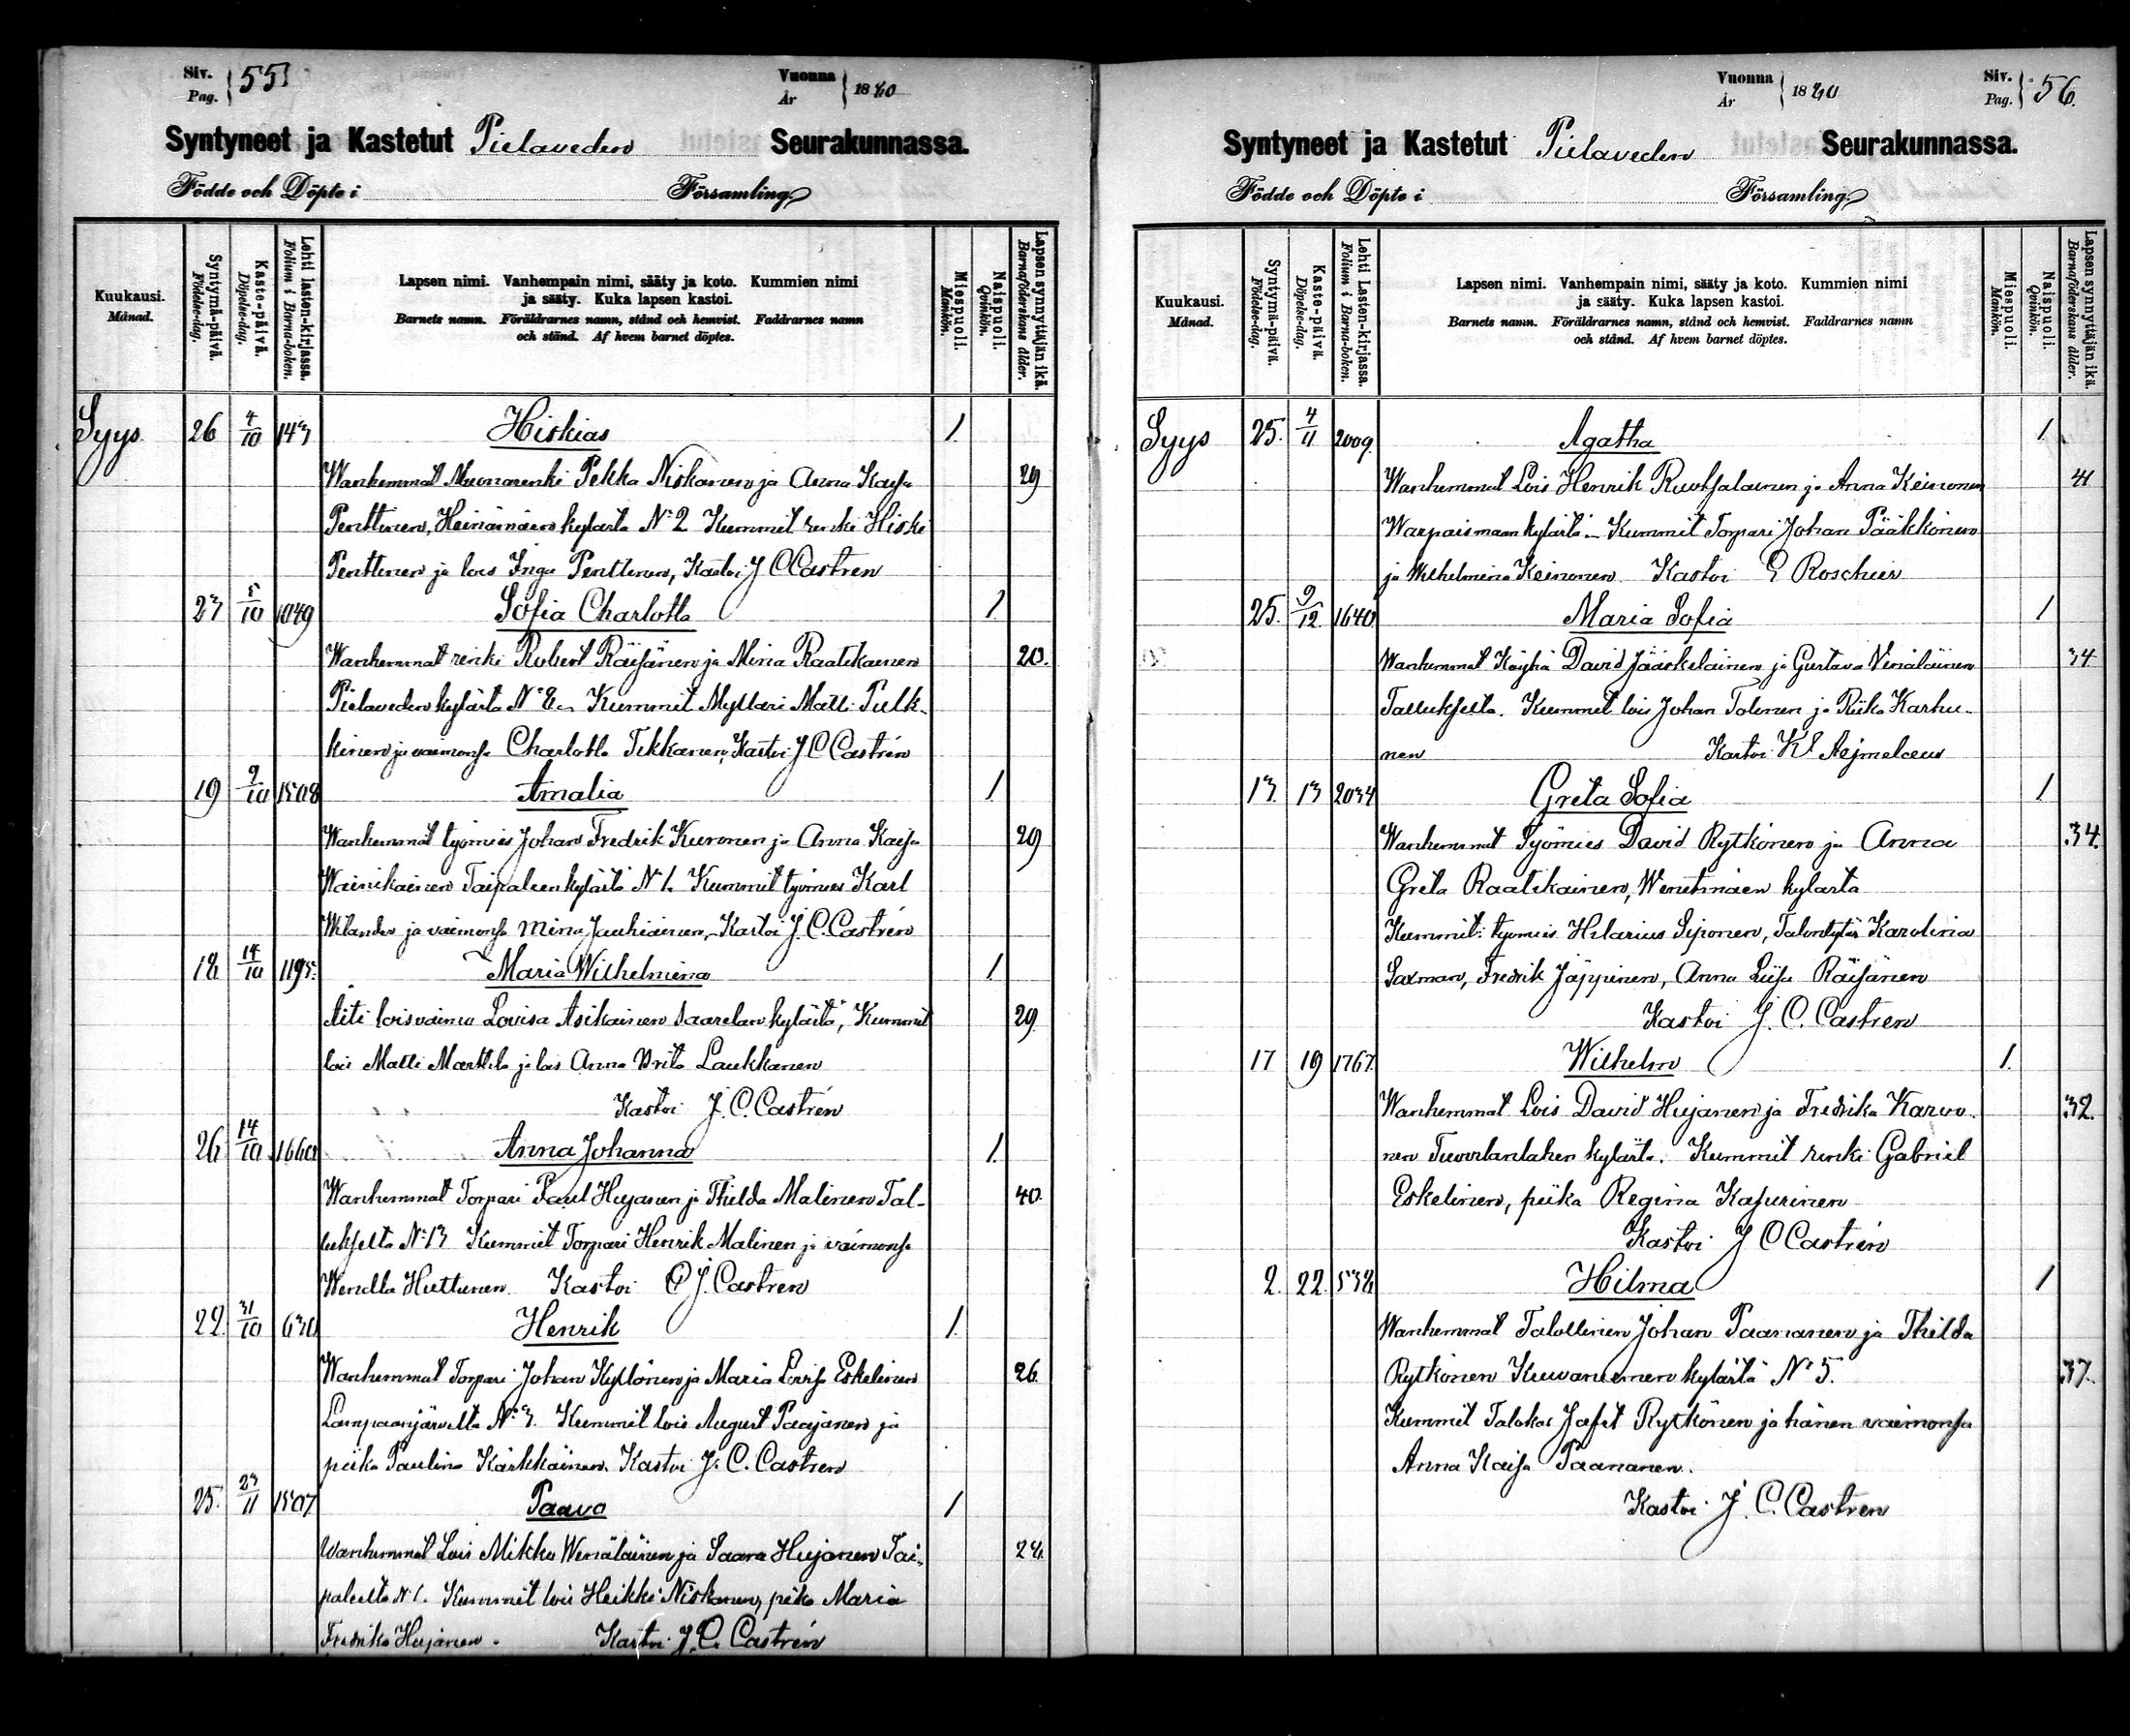 Siv. Pag. 55
Vuonna År 1880
Syntyneet ja Kastetut Pielaveden Seurakunnassa.
Födde och Döpte i Församling.
Kuukausi. Månad.
Syntymä-päivä. Födelse-dag.
Kaste-päivä. Döpelse-dag.
Lehti lasten-kirjassa. Folium i Barna-boken.
Lapsen nimi. Vanhempain nimi, sääty ja koto. Kummien nimi
ja sääty. Kuka lapsen kastoi.
Barnets namn. Föräldrarnes namn, stånd och hemvist. Faddrarnes namn
och stånd. Af hvem barnet döptes.
Miespuoli. Mankön.
Naispuoli. Qvinkön.
Lapsen synnyttäjän ikä. Barnaföderskans ålder.
Syys 26 4/10 143 Hiskias 1.
Wanhemmat Muonarenki Pekka Niskanen ja Anna Kaisa 29
Penttinen, Heinämäen kylästä N:2 Kummit renki Hiski
Penttinen ja lois Inga Penttinen, Kastoi J C Castren
23 5/10 1049 Sofia Charlotta 1.
Wanhemmat renki Robert Räisänen ja Miina Raatikainen 20.
Pielaveden kylästä N:8. Kummit Mylläri Matti Pulk-
kinen ja vaimonsa Charlotta Tikkanen, Kastoi J C Castrén
19 9/10 1508 Amalia 1.
Wanhemmat työmies Johan Fredrik Kuronen ja Anna Kaisa 29
Wainikainen Taipaleen kylästä N:1. Kummit työmies Karl
Wilander ja vaimonsa Mina Jauhiainen, Kastoi J. C. Castrén
18 14/10 1195. Maria Wilhelmina 1.
Äiti loisvaimo Lovisa Asikainen Saarelan kylästä, Kummit 29.
lois Matti Markkla ja lois Anna Brita Laukkanen
Kastoi J. C. Castrén
26 14/10 1660 Anna Johanna 1.
Wanhemmat Torpari Paul Hujanen ja Thilda Malinen Tal- 40.
lukselta N:13 Kummit Torpari Henrik Malinen ja vaimonsa
Wendla Huttunen Kastoi C J. Castren
22. 31/10 630 Henrik 1.
Wanhemmat Torpari Johan Kyllönen ja Maria Lovisa Eskelinen 26.
Lampaanjärveltä N:3. Kummit lois August Paajanen ja
piika Paulina Kärkkäinen. Kastoi J. C. Castren
25. 23/11 1507 Paavo 1
Wanhemmat Lois Mikko Wenäläinen ja Saara Hujanen Tai- 28.
paleelta N:1. Kummit lois Heikki Niskanen, piika Maria
Fredrika Hujanen. Kastoi J. C. Castrén
Vuonna År 1880
Siv. Pag. 56.
Syntyneet ja Kastetut Pielaveden Seurakunnassa.
Födde och Döpte i Församling.
Kuukausi. Månad.
Syntymä-päivä. Födelse-dag.
Kaste-päivä. Döpelse-dag.
Lehti Lasten-kirjassa. Folium i Barna-boken.
Lapsen nimi. Vanhempain nimi, sääty ja koto. Kummien nimi
ja sääty. Kuka lapsen kastoi.
Barnets namn. Föräldrarnes namn, stånd och hemvist. Faddrarnes namn
och stånd. Af hvem barnet döptes.
Miespuoli. Mankön.
Naispuoli. Qvinkön.
Lapsen synnyttäjän ikä. Barnaföderskans ålder.
Syys 25. 4/11 2009. Agatha 1.
Wanhemmat Lois Henrik Ruotsalainen ja Anna Keinonen 41
Warpaismaan kylästä. Kummit Torpari Johan Pääkkönen
ja Wilhelmina Keinonen Kastoi G Roschier
25. 9/12. 1640 Maria Sofia 1
Wanhemmat Köyhä David Jääskeläinen ja Gustava Venäläinen 34
Tallukselta. Kummit lois Johan Tolonen ja Riika Karhu-
nen Kastoi K E Aejmelaeus
13. 13 2034 Greta Sofia 1.
Wanhemmat Työmies David Rytkönen ja Anna 34.
Greta Raatikainen, Wenetmäen kylästä
Kummit: työmies Hilarius Siponen, Talontytär Karolina
Saxman, Fredrik Jäppinen, Anna Liisa Räisänen
Kastoi J. C. Castren
17 19 1767. Wilhelm 1.
Wanhemmat Lois David Hujanen ja Fredrika Karvo- 32.
nen Tuovilanlahen kylästä. Kummit renki Gabriel
Eskelinen, piika Regina Kasurinen
Kastoi J C Castrén
2. 22. 538 Hilma 1
Wanhemmat Talollinen Johan Paananen ja Thilda
Rytkönen Kuvaniemen kylästä N:5. 37.
Kummit Talokas Jafet Rytkönen ja hänen vaimonsa
Anna Kaisa Paananen.
Kastoi J. C. Castren